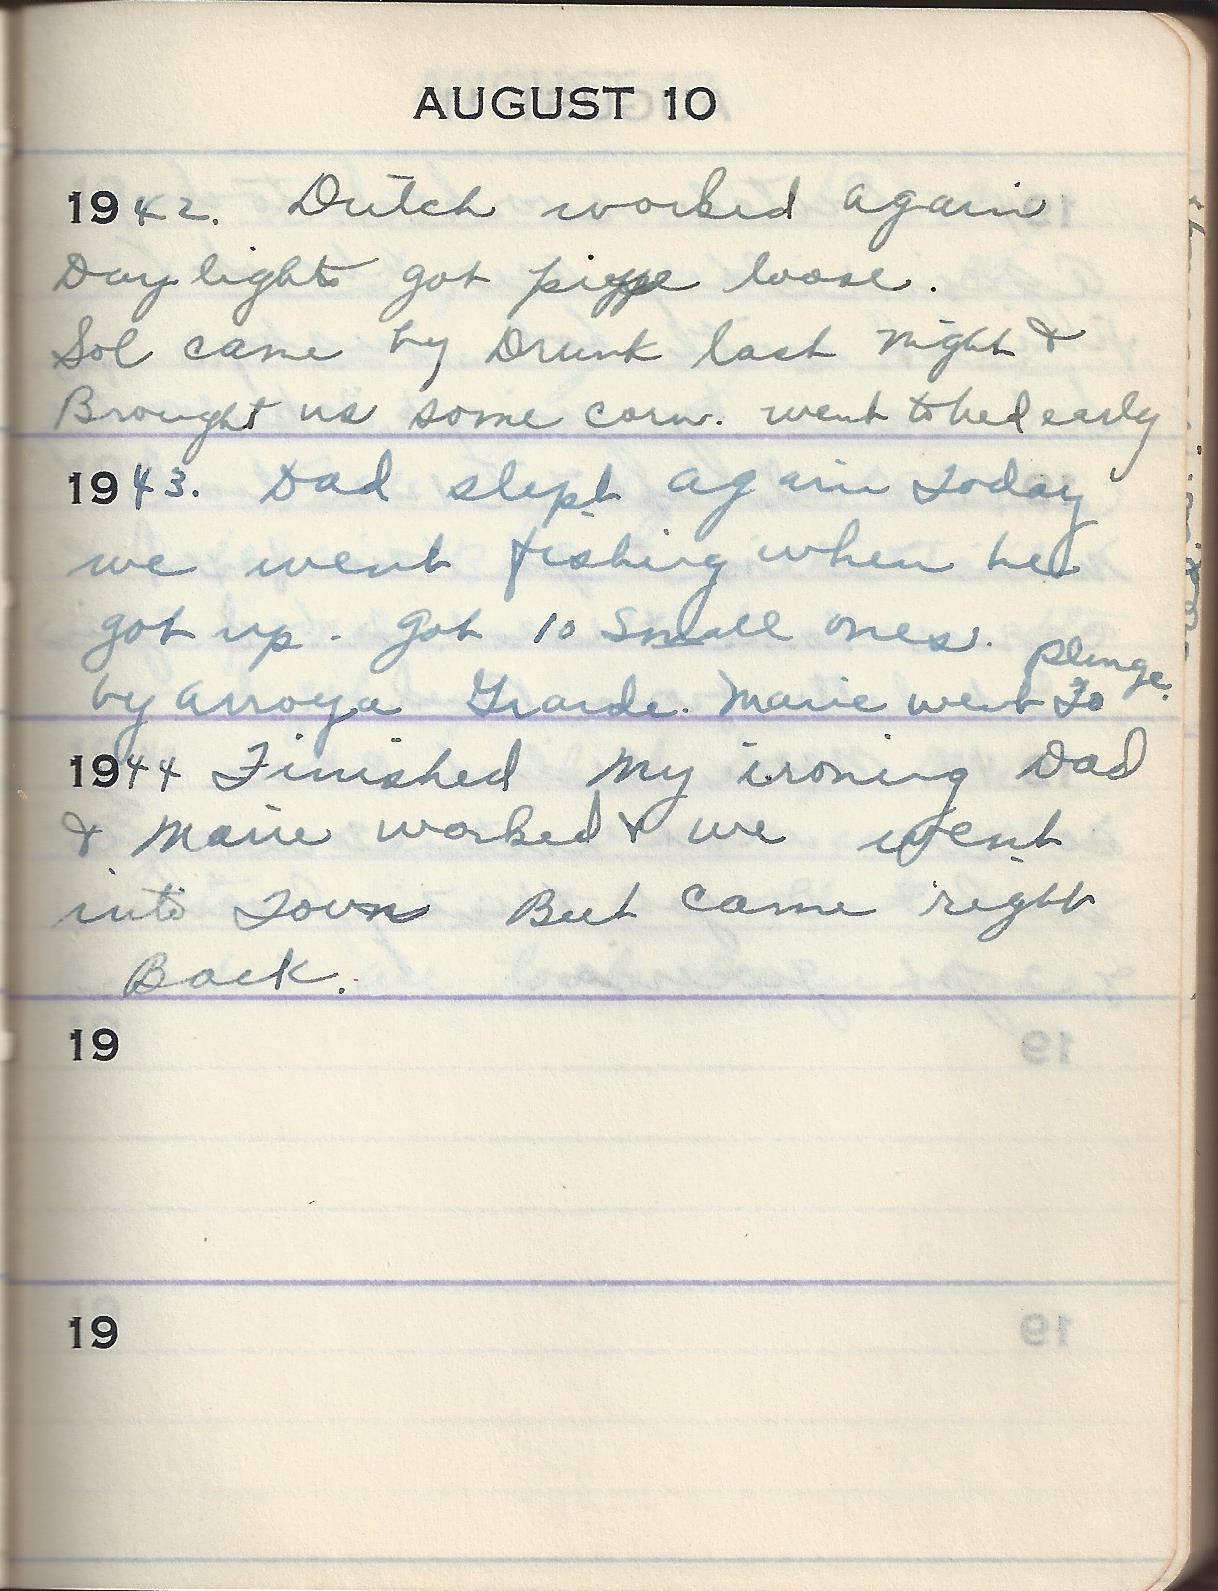 AUGUST 10
1942. Dutch worked again
Day lights got pipe loose.
Sol came by Drunk last night &
Brought us some corn. went to bed early
1943. Dad slept again Today
we went fishing when he
got up. Got 10 Small ones.
by Arroya Grande. Marie went To plunge.
1944 Finished my ironing Dad
& Marie worked & we went
into Town But came right
Back.
19
19